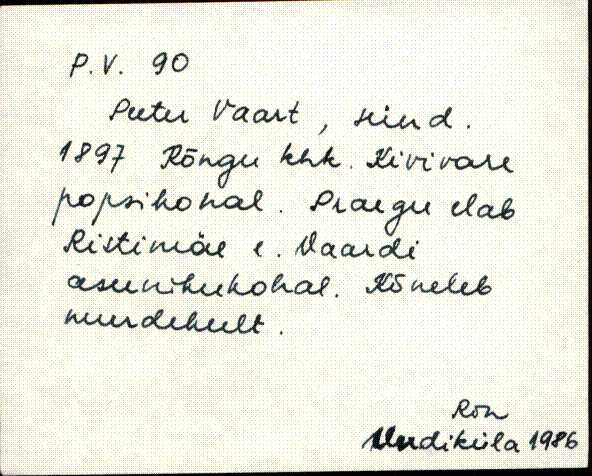 P.V. 90
Peeter Vaart, sünd.
1897 Rõngu khk. Kivivare
popsikohal. Praegu elab
Ristimäe e. Vaardi
asunikukohal. Kõneleb
murdekeelt.
Rõn
Undiküla 1986